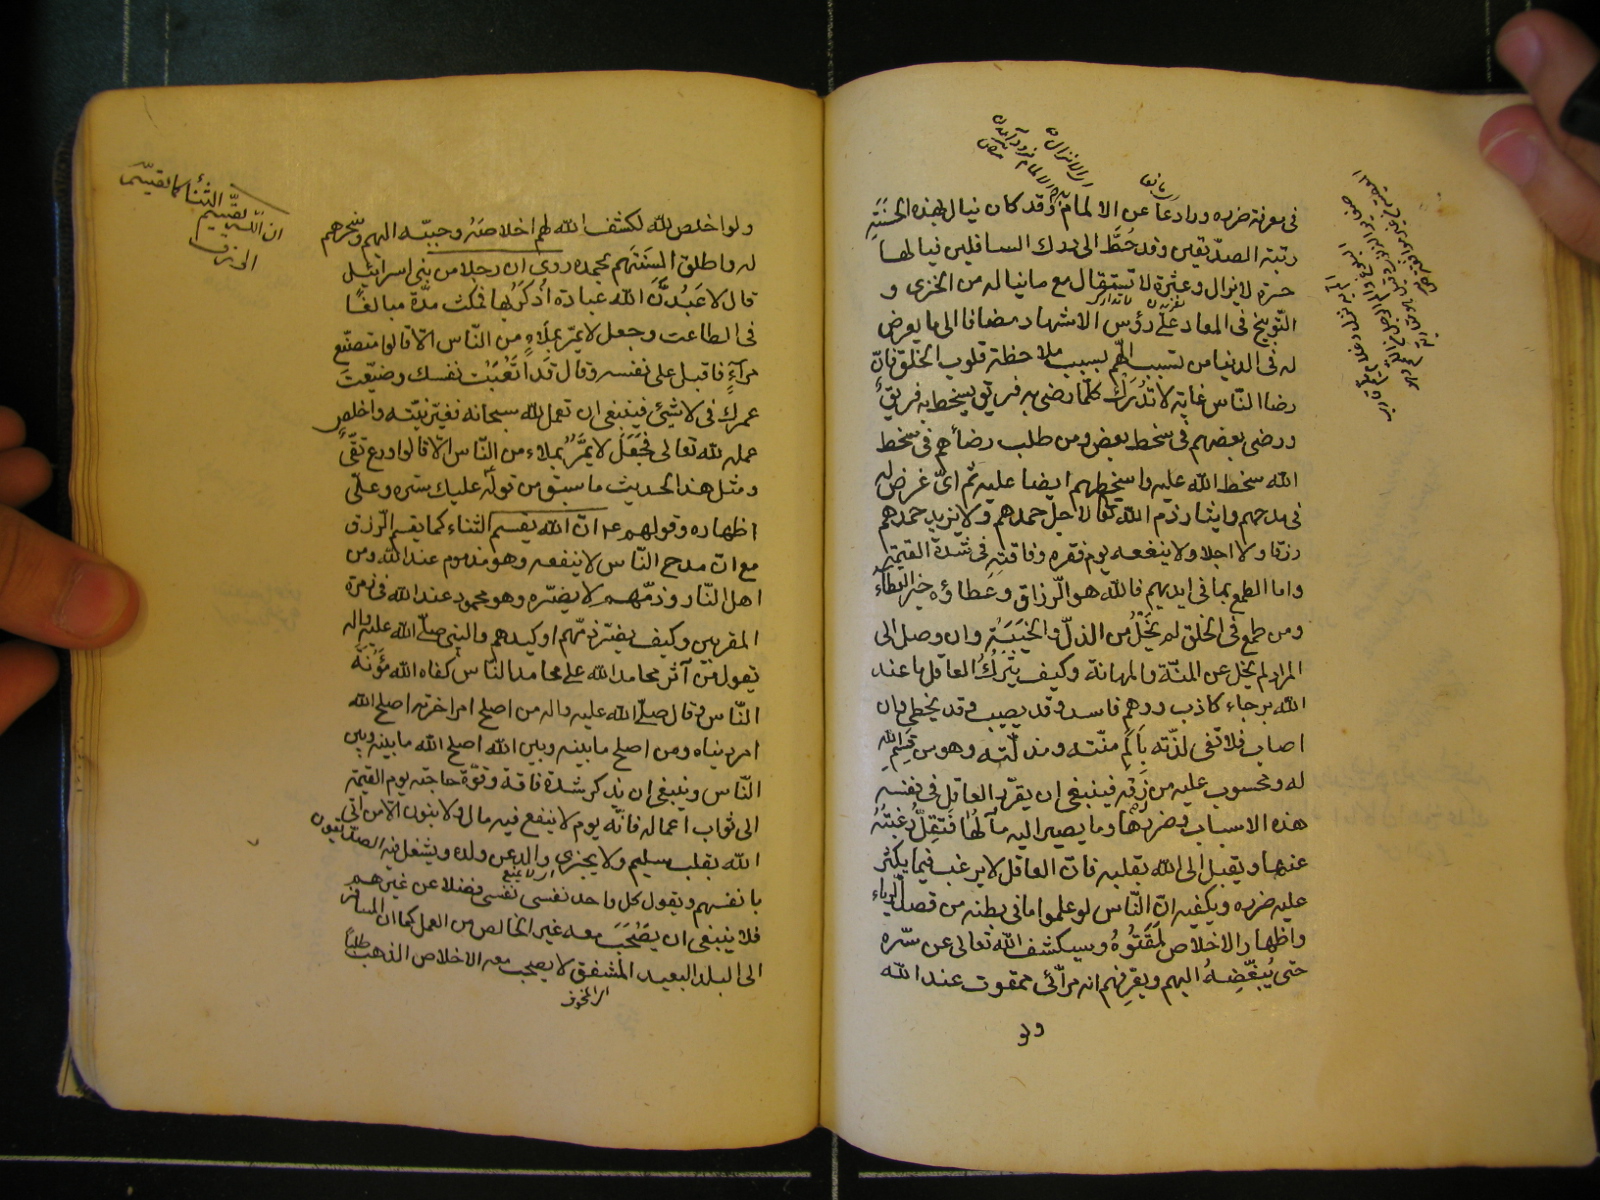 فى معرفة ضرره ورادعا عن الالمام به وقد كان ينال بهذه الحسنة
رتبة الصدّيقين وقد حُطَّ الى درك السافلين فيا لها
حسرة لا يزال وعثرة لا تستقال مع ما يناله من الخزى و
التّوبيخ فى المعاد عَلى رؤس الاشهاد مضافا الى ما يعرض
له فى الدنيا من تشتت الهّم بسبب ملاحظة قلوب الخلق فانّ
رضا النّاس غاية لا تُدْرَك كلّما رضى به فريق يسخط به فريق
ورضى بعضهم فى سخط بعض ومن طلب رضائهم فى سخط
الله سخط الله عليه واسخطهم ايضا عليه ثم اىّ غرض له
فى مدحهم وايثار ذم الله تعالى لاجل حمدهم ولا يزيد حمدهم
رزقا ولا اجلا ولا ينفعه يوم فقره وفاقته فى شدة القيمة
واما الطمع بما فى ايديهم فالله هو الرّزاق وعَطاؤه خير العطاء
ومن طمع فى الخلق لم يَخْلُ من الذلّ والخَيْبَة وان وصل الى
المراد لم يخل عن المنّة والمهانة وكيف يَتْرُكُ العاقل ما عند
الله برجاء كاذب ووهم فاسد وقد يصيب وقد يخطى وان
اصاب فلا تفى لذّته بِاَلَمِ منّته ومذلّته وهو من قسم الله
له ومحسوب عليه من رزقه فينبغى ان يقرّر العاقل فى نفسه
هذه الاسباب وضررها وما يصير اليه مآلُها فَتَقِلُّ رَغْبَتُهُ
عنها ويقبل الى الله بقلبه فانّ العاقل لا يرغب فيما يكثر
عليه ضرره ويكفيه انّ النّاس لو علموا ما فى بطنه من قصد الرياء
واظهار الاخلاص لَمَقَتُوهُ وسيكشف الله تعالى عن سّره
حتى يُبَغِّضِهُ اليهم ويعرفهم انه مرآئى ممقوت عند الله
ولو
ولو اخلص لله لكشف الله لهم اخلاصَهُ وحببّه اليهم وسخرهم
له واطلق السنَتَهم بحمده روى ان رجلا من بنى اسرائيل
قال لاعَبُدَنَّ الله عبادة اُذكَرُ بها فمكث مدّة مبالغًا
فى الطاعت وجعل لا يمّر بملاءٍ من النّاس الا قالوا متصنّع
مرآءٍ فاقبل على نفسه وقال قد اَتْعَبْتَ نفسك وضيّعت
عمرك فى لا شيئ فينبغى ان تعمل لله سبحانه فغيّر نيّته واخلص
عمله لله تعالى فجَعَلَ لا يَمُّر بملاء من النّاس الا قالوا ورع تقىٌّ
ومثل هذا الحديث ما سبق من قوله عليك ستره وعلّى
اظهاره وقولهم ع ان الله يقسم الثناء كما يقسم الرّزق
مع انّ مدح النّاس لا ينفعه وهو مذموم عند الله ومن
اهل النّار وذمّهم لا يضّره وهو محمود عند الله فى زمرة
المقربين وكيف يضّره ذمّهم او كيدهم والنبى صلّى الله عليه واله
يقول من آثر محامد الله على محامد الناس كفاه الله مَؤُنَةَ
النّاس وقال صلّى الله عليه واله من اصلح امر اخرته اصلح الله
امر دنياه ومن اصلح ما بينه وبين الله اصلح الله ما بينه وبين
النّاس وينبغى ان يذكر شدة فاقة وقوّة حاجته يوم القيمة
الى ثواب اعماله فانّه يوم لا ينفع فيه مال ولا بنون الّا من اتى
الله بقلب سليم ولا يجزى والد عن ولده ويشغل فيه الصدّيقون
بانفسهم ويقول كل واحد نفسى نفسى فضلا عن غيرهم
فلا ينبغى ان يَصْحَبَ معه غير الخالص من العمل كما ان المسافر
الى البلد البعيد المشفق لا يصحب معه الا خلاص الذهب طلبا
اى المخوف
ان الله يقسم الثناء كما يقسم
الرزق